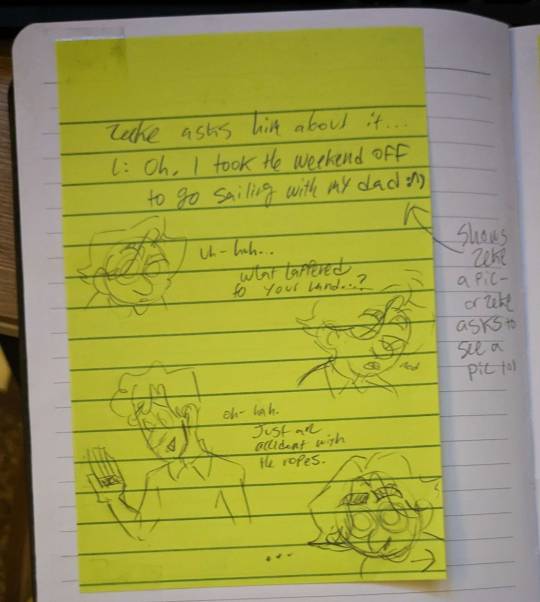 Zeke asks him about it...
L: Oh, I took the weekend off
to go sailing with my dad :))
Shows
Zeke
a pic-
or Zeke
asks to
see a
pic lol
uh-huh...
what happened
to your hand...?
oh-hah.
Just an
accident with
the ropes.
...